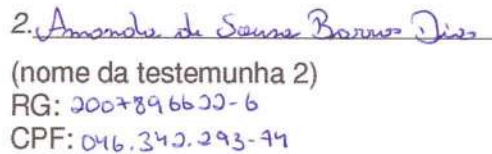 2. Amanda de Sousa Barros Dias
(nome da testemunha 2)
RG: 2007896622-6
CPF: 046.342.293-94